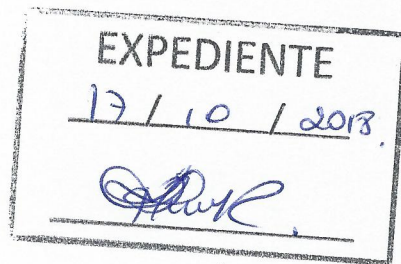 EXPEDIENTE
17 / 10 / 2018.